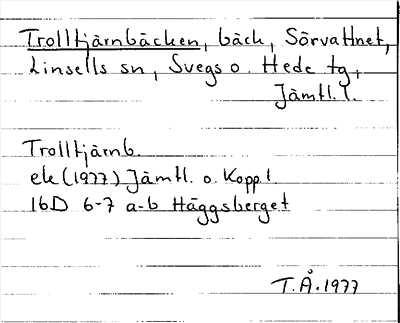 Trolltjärnbäcken, bäck, Sörvattnet,
Linsells sn, Svegs o. Hede tg,
Jämtl. l.
Trolltjärnb.
ek (1977) Jämtl. o. Kopp. l.
16D 6-7 a-b Häggsberget
T.Å. 1977